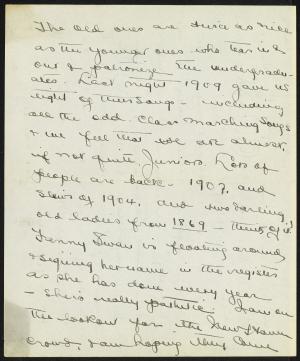 The old ones are twice as nice
as the younger ones who tear in &
out & patronize the undergradu-
ates. Last night 1909 gave us
eight of their songs - including
all the odd class marching songs
& we feel that we are almost,
if not quite, Juniors. Lots of
people are back - 1907, and
slews of 1904, and two darling
old ladies from 1869 - think of it!
Fanny Swan is floating around
& signing her name in the register
as she has done every year
- She's really pathetic. I am on
the lookout for the New Haven
crowd, & am hoping they came